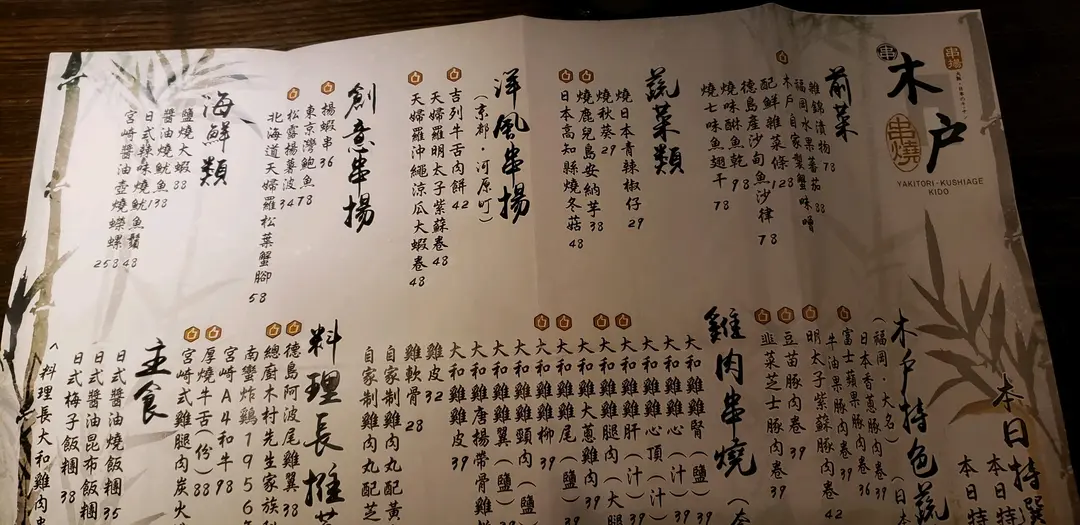 木戶
串
串揚
串燒
YAKITORI-KUSHIAGE
KIDO
前菜
雜錦漬物 78
福岡水果蕃茄 88
木戶自家製蟹味噌
配鮮雜菜條 128
德島產沙甸魚沙律 78
燒味醂魚乾 98
燒七味魚翅干 78
蔬菜類
燒日本青辣椒仔 29
燒秋葵 29
燒鹿兒島安納芋 38
日本高知縣燒冬菇 48
洋風串揚
(京都·河原町)
吉列牛舌肉餅 42
天婦羅明太子紫蘇卷 48
天婦羅沖繩涼瓜大蝦卷 48
創意串揚
揚蝦串 36
東京灣鮑魚 78
松露揚薯波 34
北海道天婦羅松葉蟹腳 58
海鮮類
鹽燒大蝦 88
醬油燒魷魚 138
日式辣味燒魷魚鬚 48
宮崎醬油壺燒蠑螺 258
本日特選
本日特
本日特
木戶特色蔬
(福岡·大名)
日本香蔥豚肉卷 39
富士蘋果豚肉卷 36
牛油果豚肉卷 39
明太子紫蘇豚肉卷 42
豆苗豚肉卷 39
韮菜芝士豚肉卷 39
雞肉串燒
大和雞腎(鹽) 39
大和雞心(汁) 39
大和雞心頂(汁) 39
大和雞肝(汁) 39
大和雞大蔥雞肉(大腿
大和雞尾(鹽) 39
大和雞柳 39
大和雞頸肉(鹽
大和雞翼(鹽)
大和雞唐揚帶骨雞
大和雞雞皮 39
雞皮 32
雞軟骨 28
自家制雞肉丸配黃
自家制雞肉丸配芝
料理長推
德島阿波尾雞翼 38
總廚木村先生家族
南蠻炸雞1956年
宮崎A4和牛 98
厚燒牛舌(份) 88
宮崎式雞腿肉炭火
主食
日式醬油燒飯糰 35
日式醬油昆布飯糰
日式梅子飯糰 38
料理長大和雞肉串